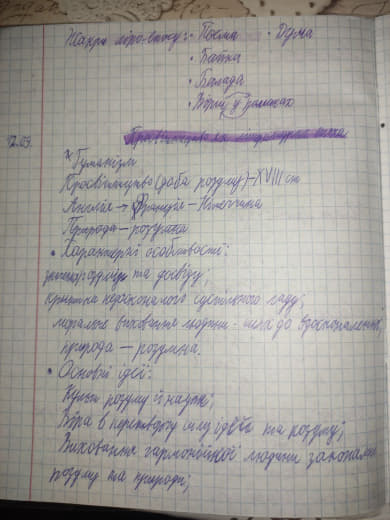 Жанри ліро-епосу: • Поема • Дума
• Байка
• Балада
• Вірш у
12.09. Просвітництво як
* Гуманізм
Просвітництво (доба розуму) - XVIII ст
Англія → Франція - Німеччина
Природа - розумна
• Характерні особливості:
розуму та досвіду;
критика недосконалого суспільного ладу;
моральне виховання людини - шлях до вдосконалення;
природа — розумна.
• Основні ідеї:
Культ розуму й науки;
Віра в перетворчу силу ідей та розуму;
Виховання гармонійної людини законами
розуму та природи;